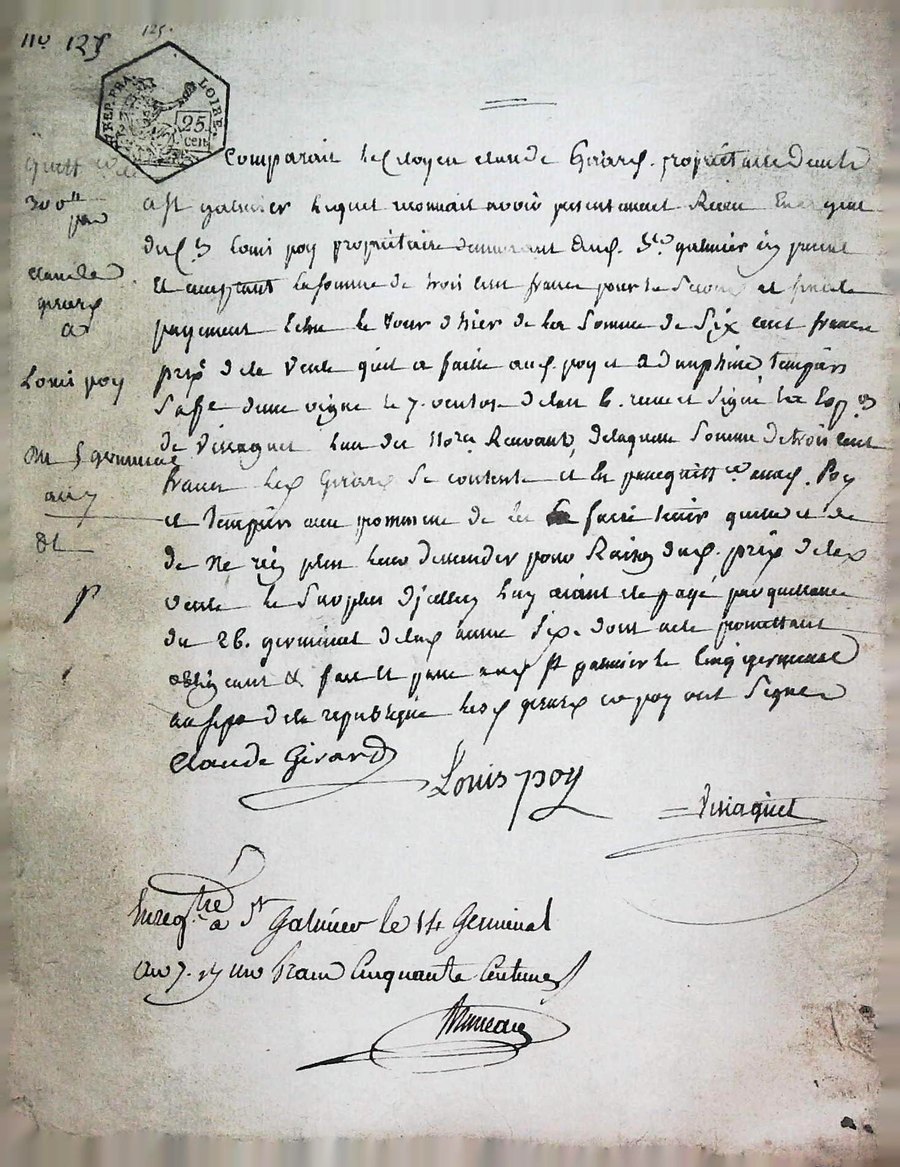 nº 125
125.
REP. FRA.
LOIRE.
25.
cen.
quitt ce de
300 tt
par
claude
girard
a
Louis poy
du 5 germinal
an 7
Comparait le Citoyen claude Girard. propriétaire demt
a st galmier lequel reconnait avoir presentement Receu
du C.n Louis poy propriétaire demeurant aud. St. galmier en
et comptant la somme de trois cent francs pour le Second et
payement echu le Jour d'hier de la Somme de Six cent francs
prix de la Vente qu'il a faite aud. poy et a dauphine tempier
Sa fe d'une vigne le 7. ventose de lan 6. receu et signé
de Viricquet lun des Nores Recevants, de laquelle Somme de trois cent
francs led Girard Se contente et en passe quitt ce aud. Poy
et tempier avec promesse de les faire tenir quitte et de
de ne rien plus leur demander pour Raison dud. prix de lad
vente le Surplus d'icelluy luy aiant ete payé par quittance
du 26. germinal de lad année Six. dont acte promettant
obligeant & fait et passé aud st galmier le Cinq germinal
an sept de la republique lesd girard et poy ont Signé
Claude Girard
Louis poy
Viricquet
Enregtré a St Galmier le 14 Germinal
an 7. r/ un franc Cinquante Centimes